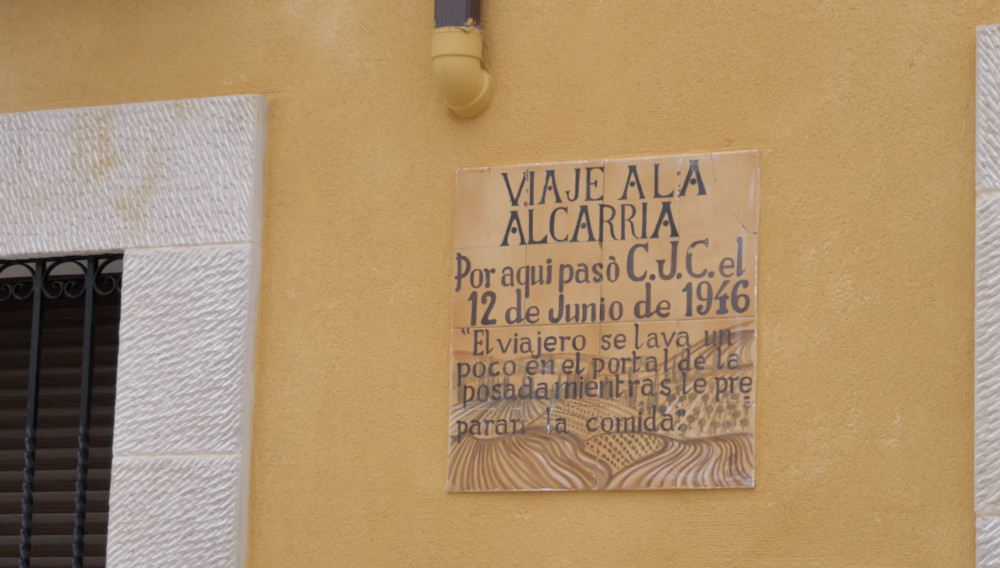 VIAJE A LA
ALCARRIA
Por aqui pasò C.J.C. el
12 de Junio de 1946
"El viajero se lava un
poco en el portal de la
posada mientras le pre
paran la comida".